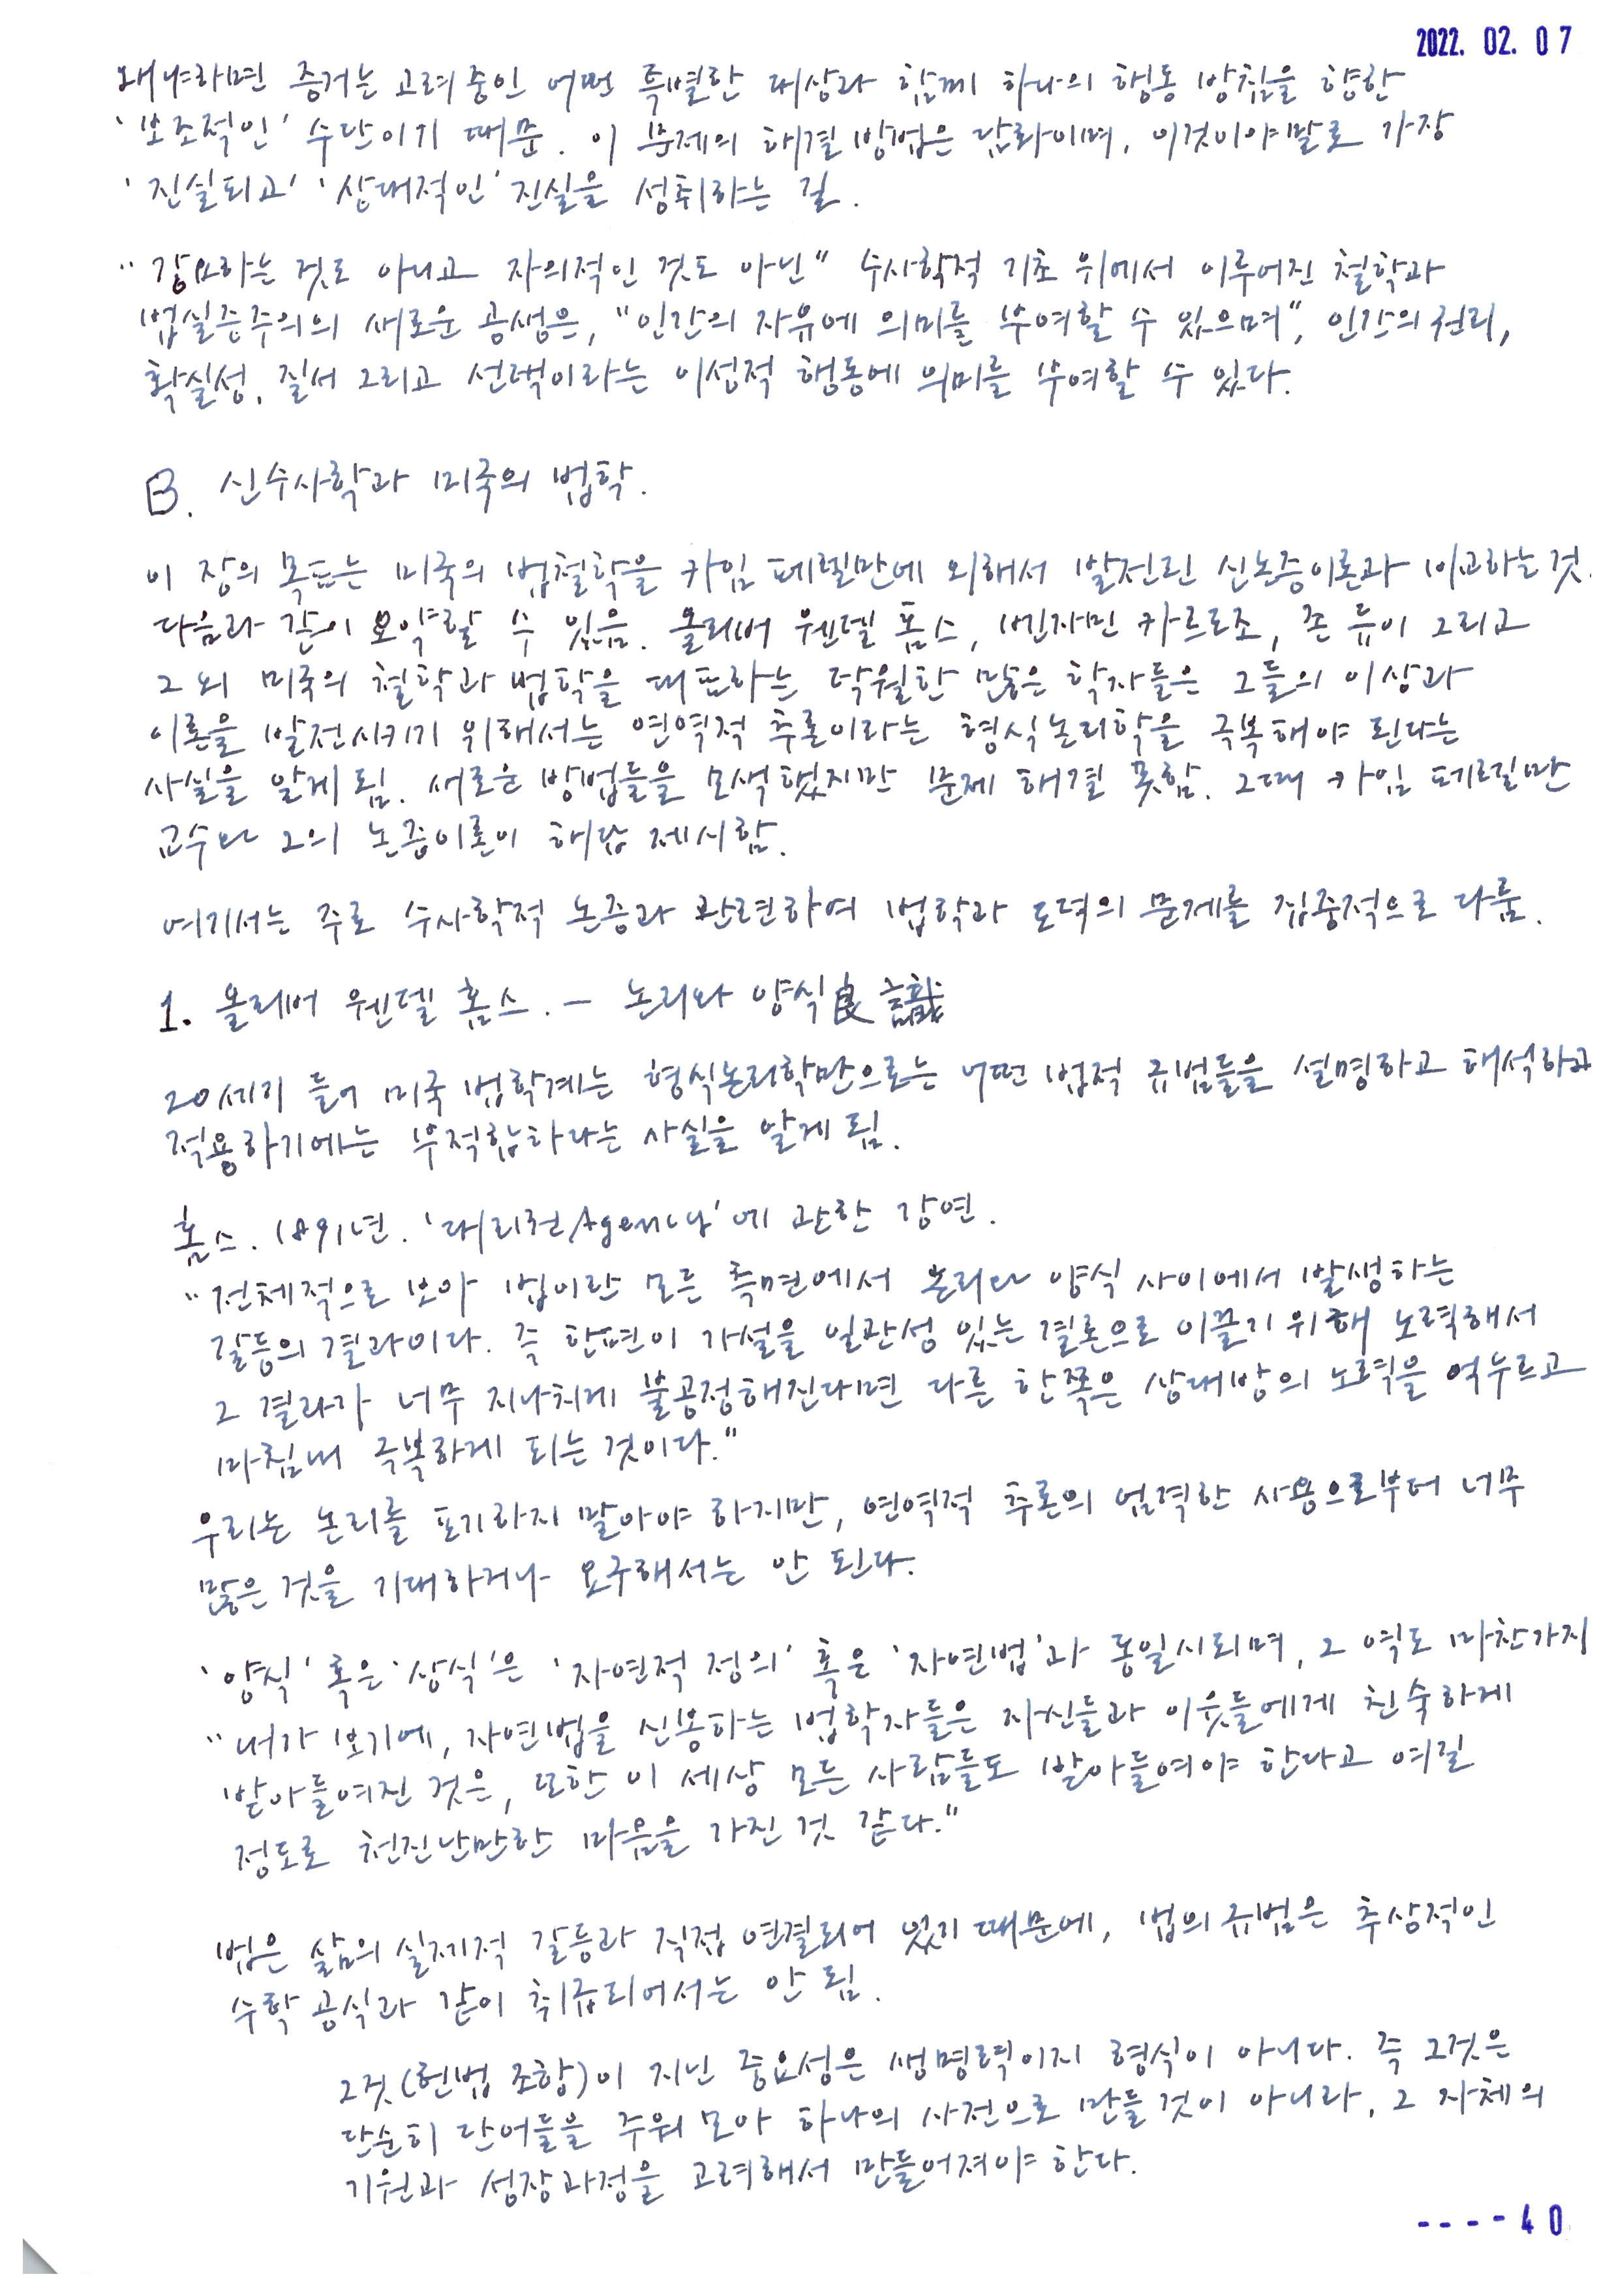 2022. 02. 07
왜냐하면 증거는 고려중인 어떤 특별한 대상과 함께 하나의 행동 방침을 향한
'보조적인' 수단이기 때문. 이 문제의 해결 방법은 담화이며, 이것이야말로 가장
'진실되고' '상대적인' 진실을 성취하는 길.
"강요하는 것도 아니고 자의적인 것도 아닌" 수사학적 기초 위에서 이루어진 철학과
법실증주의의 새로운 공생은, "인간의 자유에 의미를 부여할 수 있으며", 인간의 권리,
확실성, 질서 그리고 선택이라는 이성적 행동에 의미를 부여할 수 있다.
B. 신수사학과 미국의 법학.
이 장의 목표는 미국의 법철학을 카임 페렐만에 의해서 발전된 신논증이론과 비교하는 것.
다음과 같이 요약할 수 있음. 올리버 웬델 홈스, 벤자민 카르도조, 존 듀이 그리고
그 외 미국의 철학과 법학을 대표하는 탁월한 많은 학자들은 그들의 이상과
이론을 발전시키기 위해서는 연역적 추론이라는 형식논리학을 극복해야 된다는
사실을 알게 됨. 새로운 방법들을 모색했지만 문제 해결 못함. 그때 카임 페르길만
교수와 그의 논증이론이 해답 제시함.
여기서는 주로 수사학적 논증과 관련하여 법학과 도덕의 문제를 집중적으로 다룸.
1. 올리버 웬델 홈스. - 논리와 양식良識
20세기 들어 미국 법학계는 형식논리학만으로는 어떤 법적 규범들을 설명하고 해석하고
적용하기에는 부적합하다는 사실을 알게 됨.
홈스. 1891년. '대리권Agency'에 관한 강연.
"전체적으로 보아 법이란 모든 측면에서 논리와 양식 사이에서 발생하는
갈등의 결과이다. 즉 한편이 가설을 일관성 있는 결론으로 이끌기 위해 노력해서
그 결과가 너무 지나치게 불공정해진다면 다른 한쪽은 상대방의 노력을 억누르고
마침내 극복하게 되는 것이다."
우리는 논리를 포기하지 말아야 하지만, 연역적 추론의 엄격한 사용으로부터 너무
많은 것을 기대하거나 요구해서는 안 된다.
'양식' 혹은 '상식'은 '자연적 정의' 혹은 '자연법'과 동일시되며, 그 역도 마찬가지
"내가 보기에, 자연법을 신봉하는 법학자들은 자신들과 이웃들에게 친숙하게
받아들여진 것은, 또한 이 세상 모든 사람들도 받아들여야 한다고 여길
정도로 천진난만한 마음을 가진 것 같다."
법은 삶의 실제적 갈등과 직접 연결되어 있기 때문에, 법의 규범은 추상적인
수학 공식과 같이 취급되어서는 안 됨.
그것(헌법 조항)이 지닌 중요성은 생명력이지 형식이 아니다. 즉 그것은
단순히 단어들을 주워 모아 하나의 사전으로 만들 것이 아니라, 그 자체의
기원과 성장과정을 고려해서 만들어져야 한다.
----40